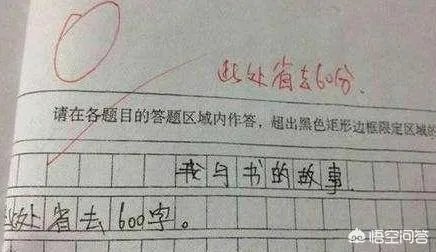 此处省去60分.
请在各题目的答题区域内作答，超出黑色矩形边框限定区域的
我与书的故事.
此处省去600字。
悟空问答